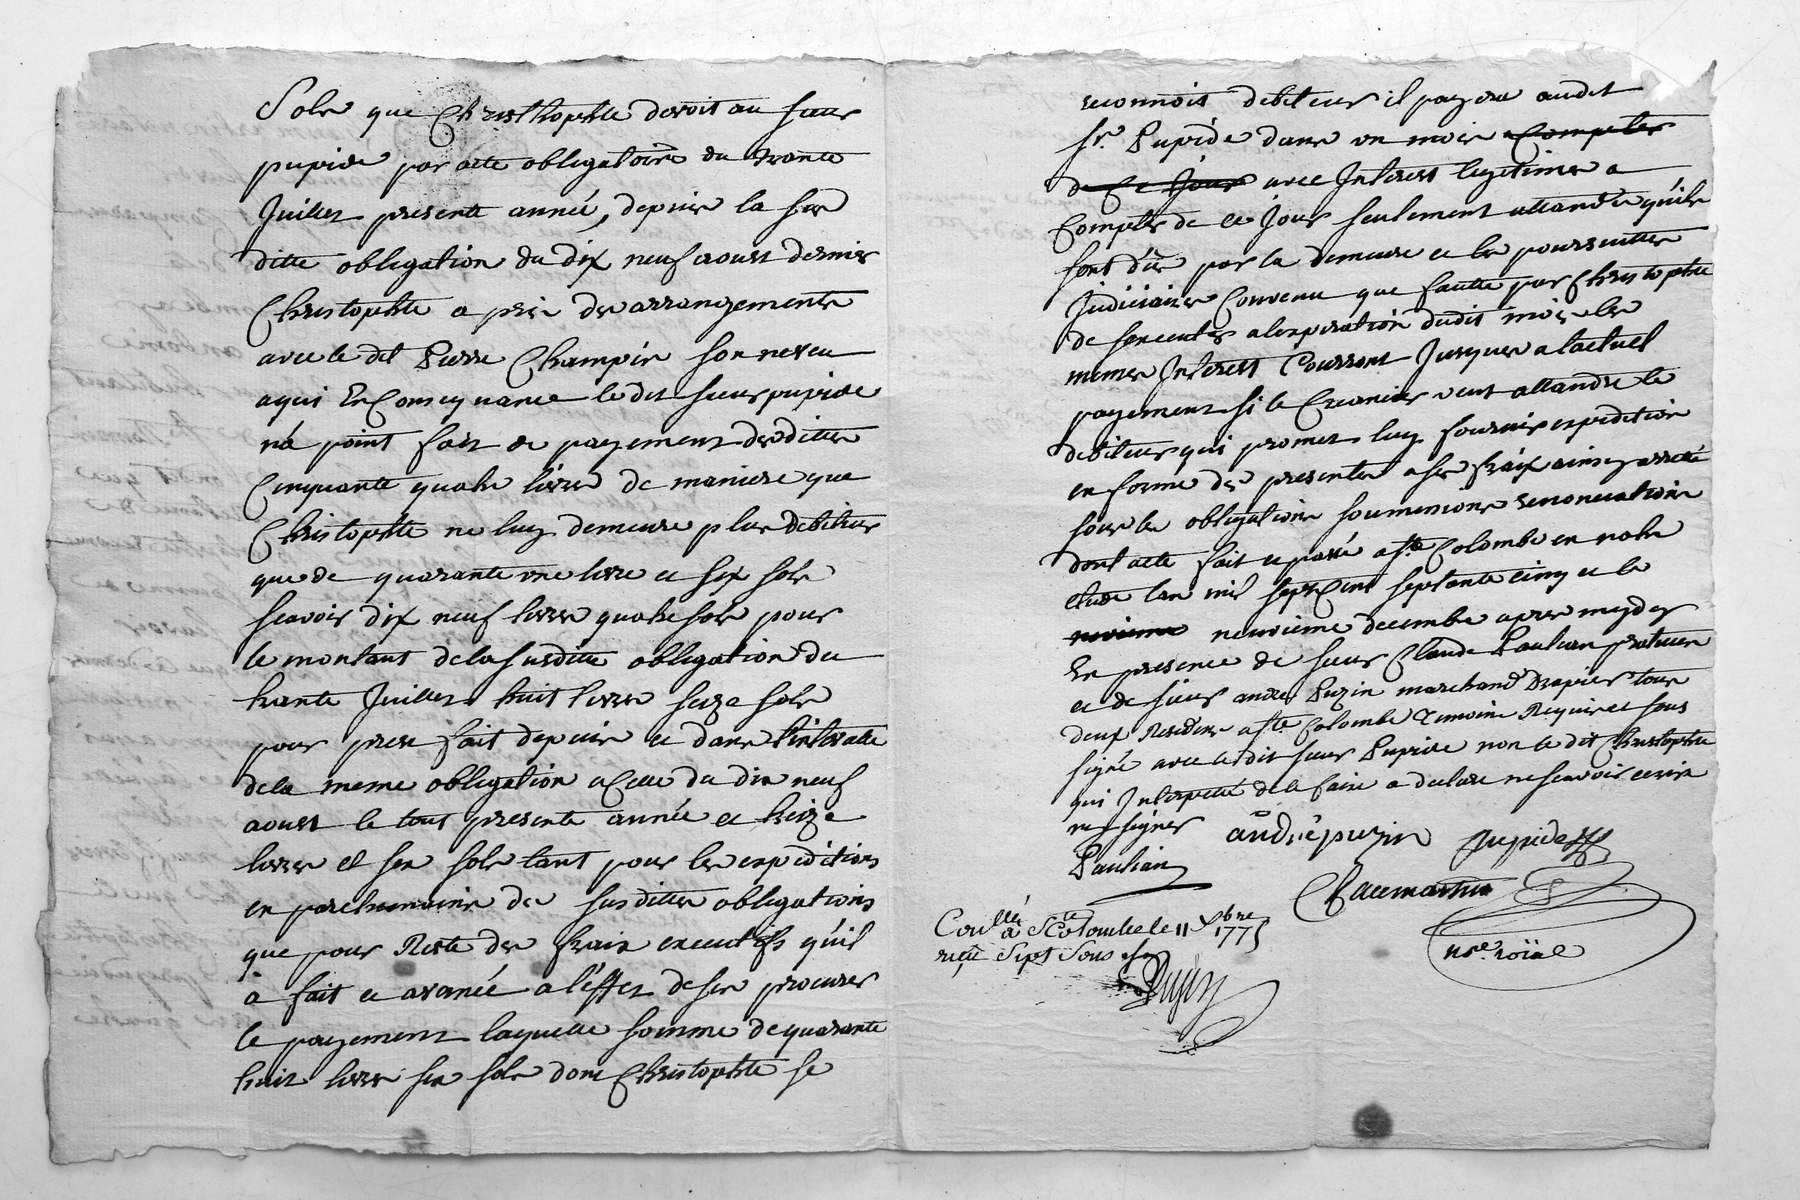 Sols que Christhophle devoit au sieur
pupide par acte obligatoire du trante
Juillet presente année, depuis la sus
ditte obligation du dix neuf aoust dernier
Christophle a pris des arrangements
avec le dit Pierre Champin son neveu
aqui En Consequance le dit sieur pupide
n'a point fait de payement desdittes
Cinquante quatre livres de maniere que
Christophle ne luy demeure plus debiteur
que de quarante une livre et six sols
scavoir dix neuf livres quatre sols pour
le montant dela susditte obligation du
trante Juillet huit livres seize sols
pour pres fait depuis et dans l'intervalle
dela meme obligation a Celle du dix neuf
aoust le tout presente année et treize
livres et six sols tant pour les expeditions
en parchemains des susdittes obligations
que pour Reste des fraix executifs qu'il
à fait et avancé a l'effet de se procurer
le payement laquelle somme de quarante
huit livres six sols dont Christophle se
reconnois debiteur il payera audit
sr. Pupide dans un mois Compter
de Ce Jour avec Interest legitimes a
Compter de ce Jour seulement attandu qu'ils
sont dûs par la demeure et les poursuittes
Judiciaires Convenu que faute par Christophle
de s'executer a l'expiration dudit mois les
memes Interest Courront Jusques a l'actuel
payement si le Creancier veut attandre le
debiteur qui promet luy fournir expedition
en forme des presentes a ses fraix ainsy arreté
sous les obligations soumissions renonciations
dont acte fait et passé a ste Colombe en notre
etude l'an mil sept Cent septante cinq et le
neuvieme decembre apres mydy
En presence de sieur Claude Paulian praticien
et de sieur andré Puzin marchand Drapier tous
deux Residens a ste Colombe Temoins Requis et sous
signé avec ledit sieur Pupide non le dit Christophle
qui Interpellé de le faire a declare ne scavoir ecrire
ny signer
andré puzin pupide
Paulian
Chacemartin
nre. roïal
Conllé à Ste Colombe le 11 Xbre 1775
reçu Sept Sous